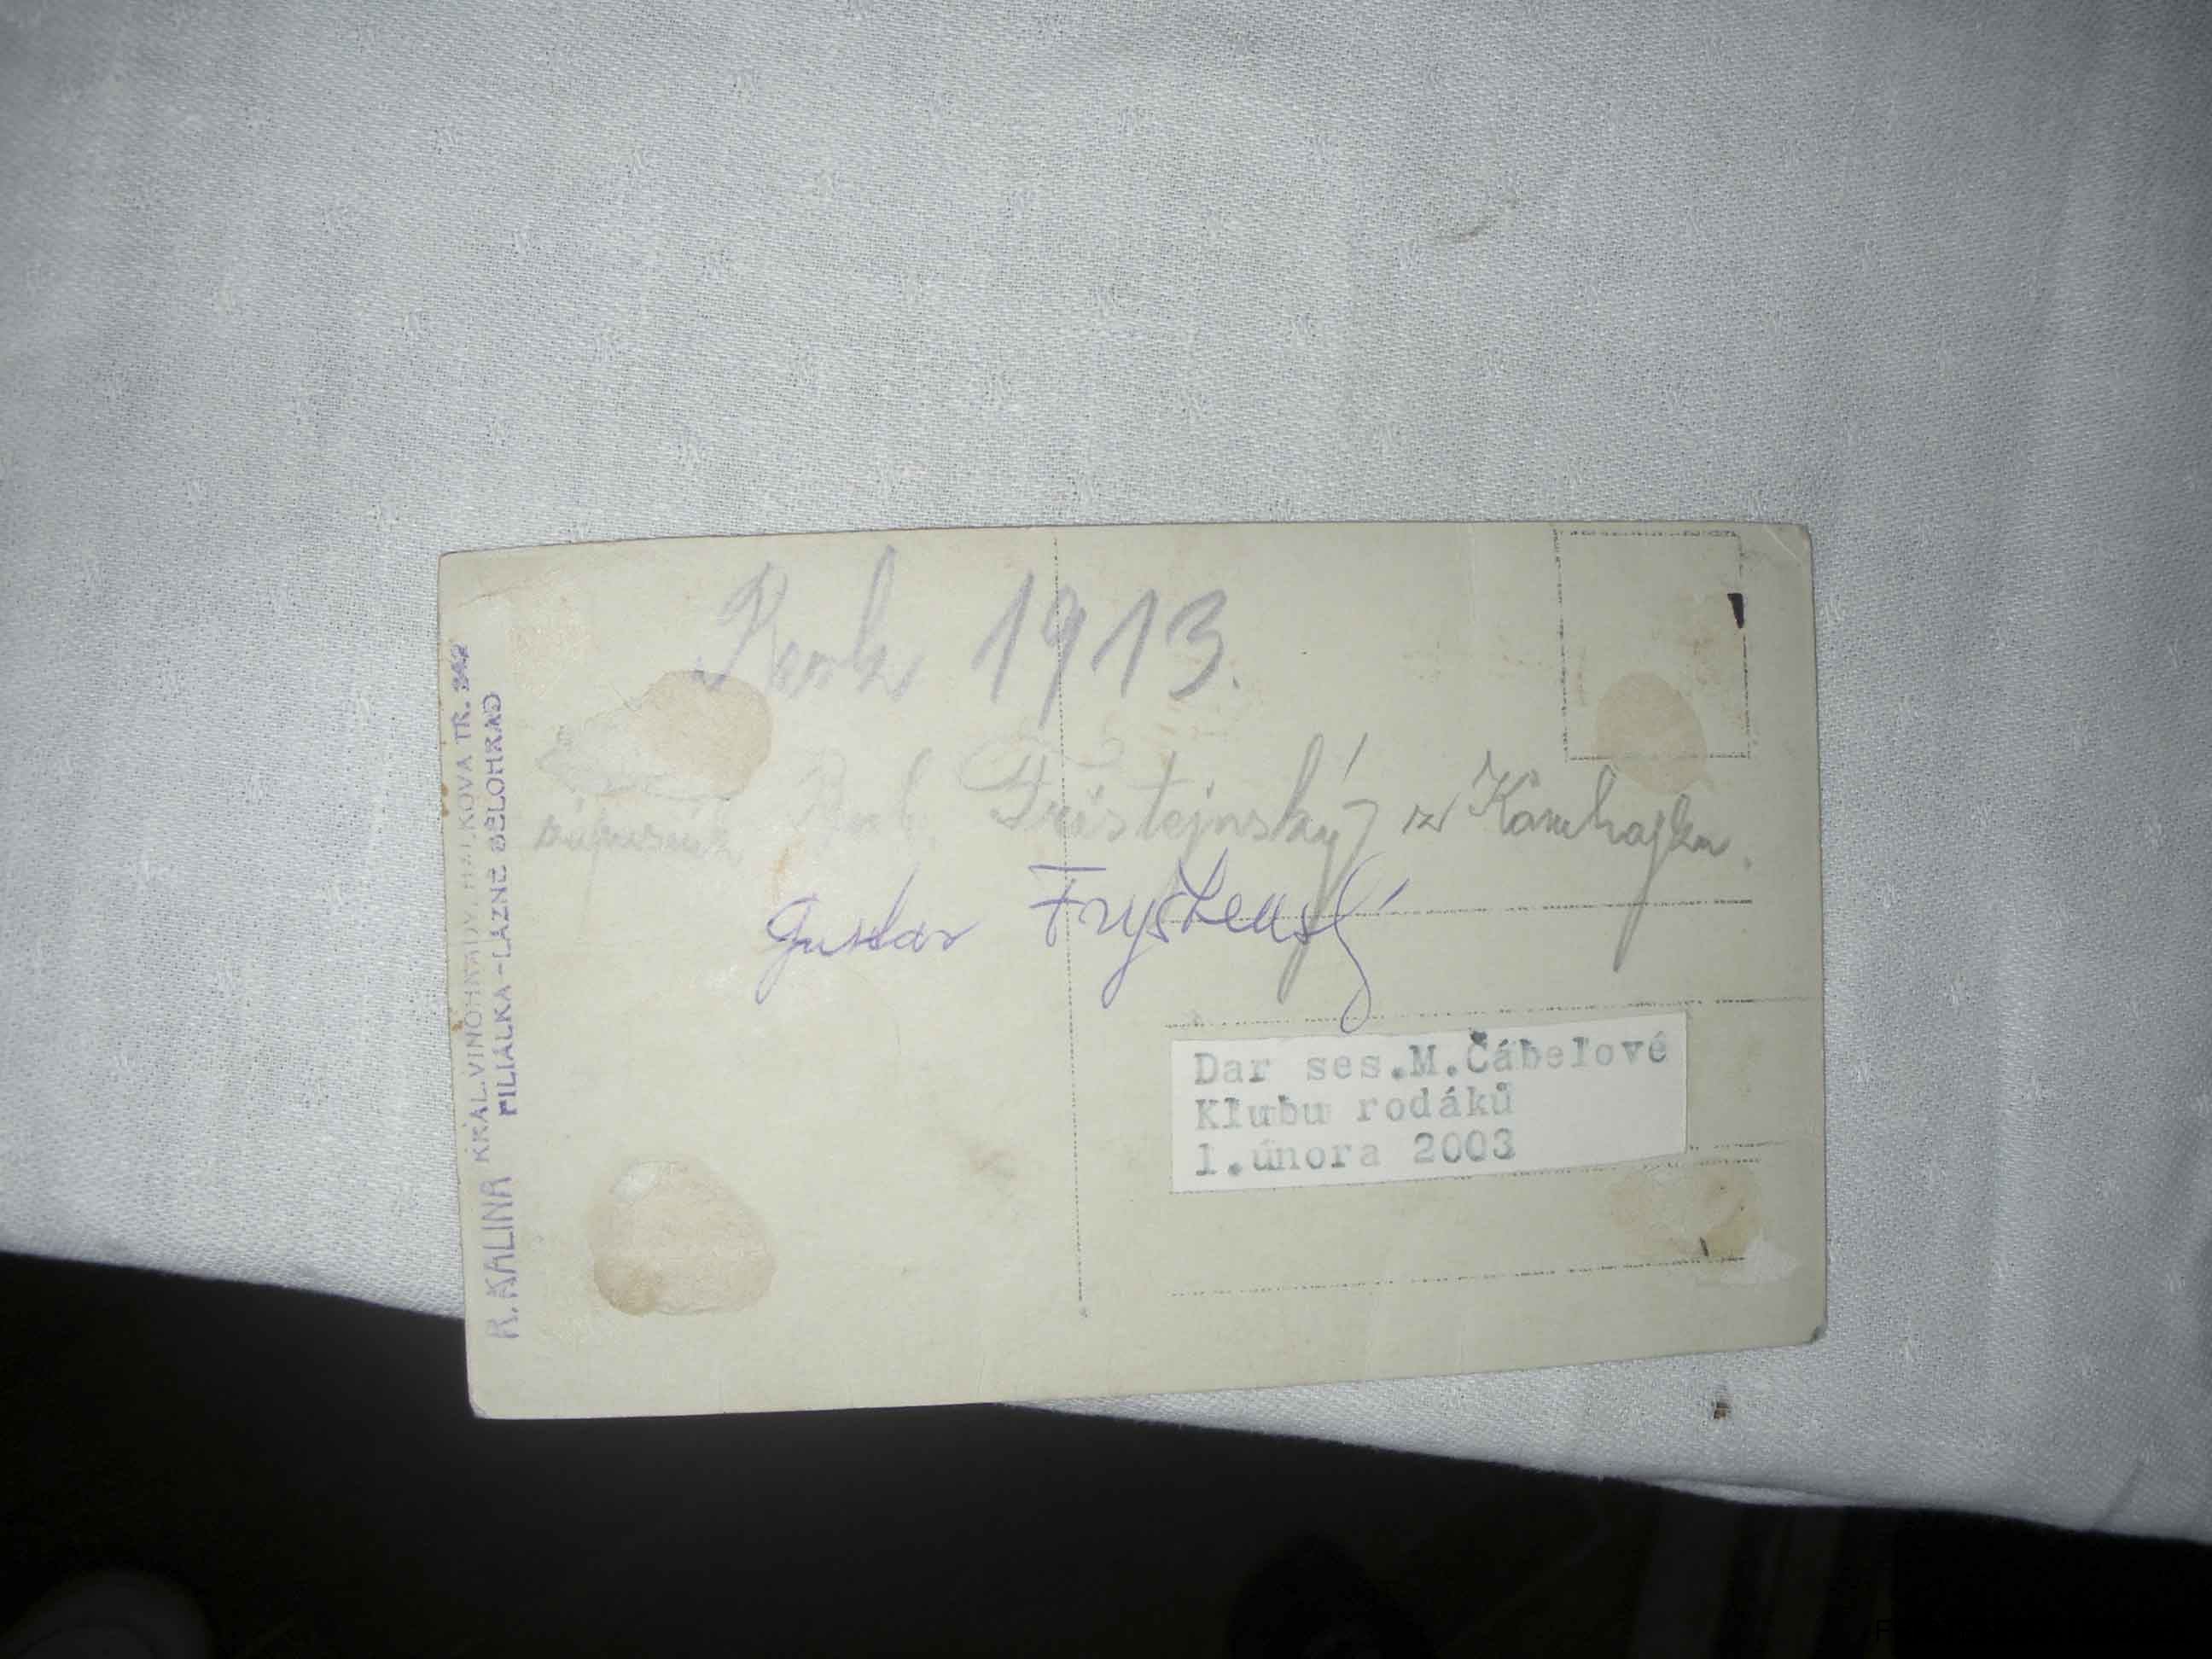 Rok 1913.
zápasník Frištejnský z Kamhajku.
Gustav Fryštenský
Dar ses.M.Čábelové
Klubu rodáků
1.února 2003
R. KALINA KRÁL. VINOHRADY, HÁLKOVA TŘ. 242
FILIÁLKA - LÁZNĚ BĚLOHRAD